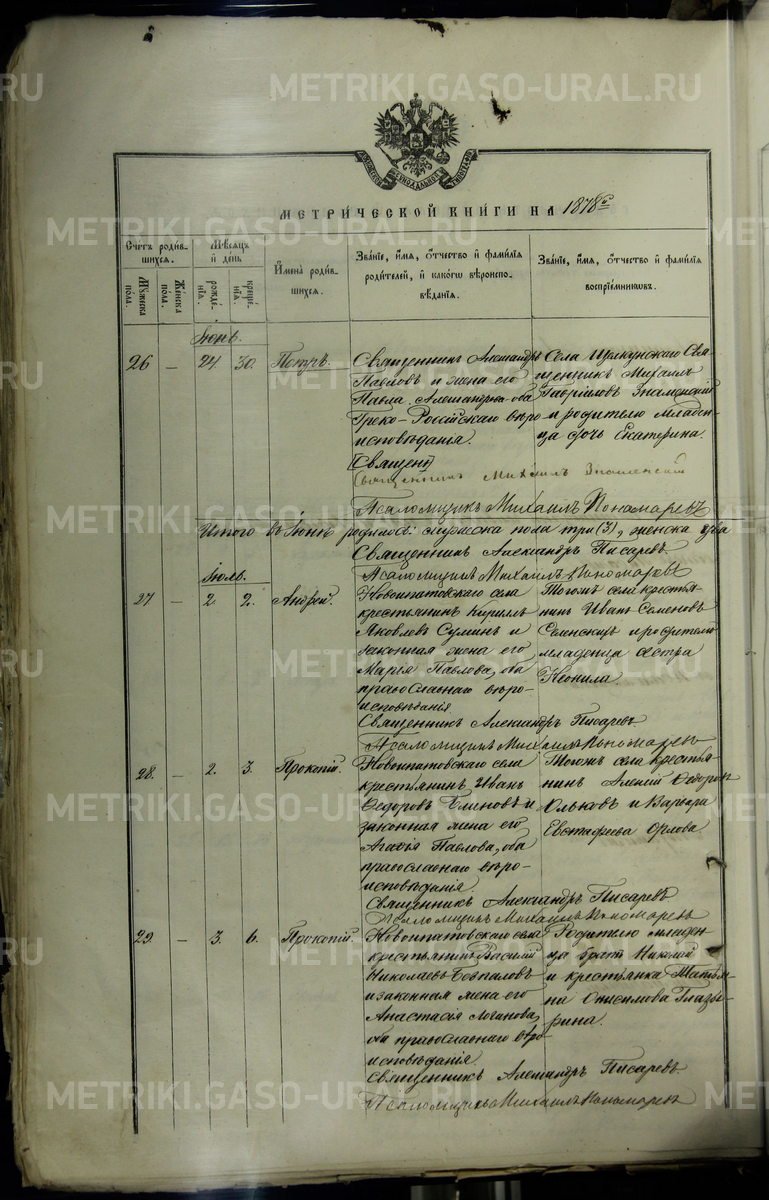 METRIKI.GASO-URAL.RU
МЕТРИЧЕСКОЙ КНИГИ НА 1878 г.
Счетъ родившихся.
Мужеска пола.
Женска пола.
Мѣсяцъ и день
рожденія.
крещенія.
Имена родившихся.
Званіе, имя, отчество и фамилія родителей, и какого вѣроисповѣданія.
Званіе, имя, отчество и фамилія воспріемниковъ.
Іюнь.
26 — 24 30. Петръ.
Священникъ Александръ
Павловъ и жена его
Павла Александрова оба
Греко-Россійскаго вѣро-
исповѣданія.
Села Свя-
щенникъ Михаилъ
Гавріиловъ Знаменскій
и родителю младен-
ца дочь Екатерина.
[Священ]
Священникъ Михаилъ Знаменскій
Псаломщикъ Михаилъ Пономаревъ
Итого въ Іюнѣ родилось мужеска пола три (3), женска два
Священникъ Александръ Писаревъ.
Псаломщикъ Михаилъ Пономаревъ
Іюль.
27 — 2. 2. Андрей.
Новоипатовскаго села
крестьянинъ Кириллъ
Яковлевъ Суминъ и
законная жена его
Марья Павлова, оба
православнаго вѣро-
исповѣданія
Тогожъ села крестья-
нинъ Иванъ Семеновъ
и родителю
младенца сестра
Неонила.
Священникъ Александръ Писаревъ
Псаломщикъ Михаилъ Пономаревъ
28. — 2. 3. Прокопій.
Новоипатовскаго села
крестьянинъ Иванъ
Ѳедоровъ Блиновъ и
законная жена его
Агафія Павлова, оба
православнаго вѣро-
исповѣданія
Тогожъ села крестья-
нинъ Алексѣй Ѳедоровъ
Ольковъ и Варвара
Евстафеева Орлова
Священникъ Александръ Писаревъ
Псаломщикъ Михаилъ Пономаревъ
29. — 3. 6. Прокопій.
Новоипатовскаго села
крестьянинъ Василій
Николаевъ Безпаловъ
и законная жена его
Анастасія Логинова,
оба православнаго вѣро-
исповѣданія
Родителю младен-
ца братъ Николай
и крестьянка Матре-
на Онисимова Глазы-
рина.
Священникъ Александръ Писаревъ
Псаломщикъ Михаилъ Пономаревъ